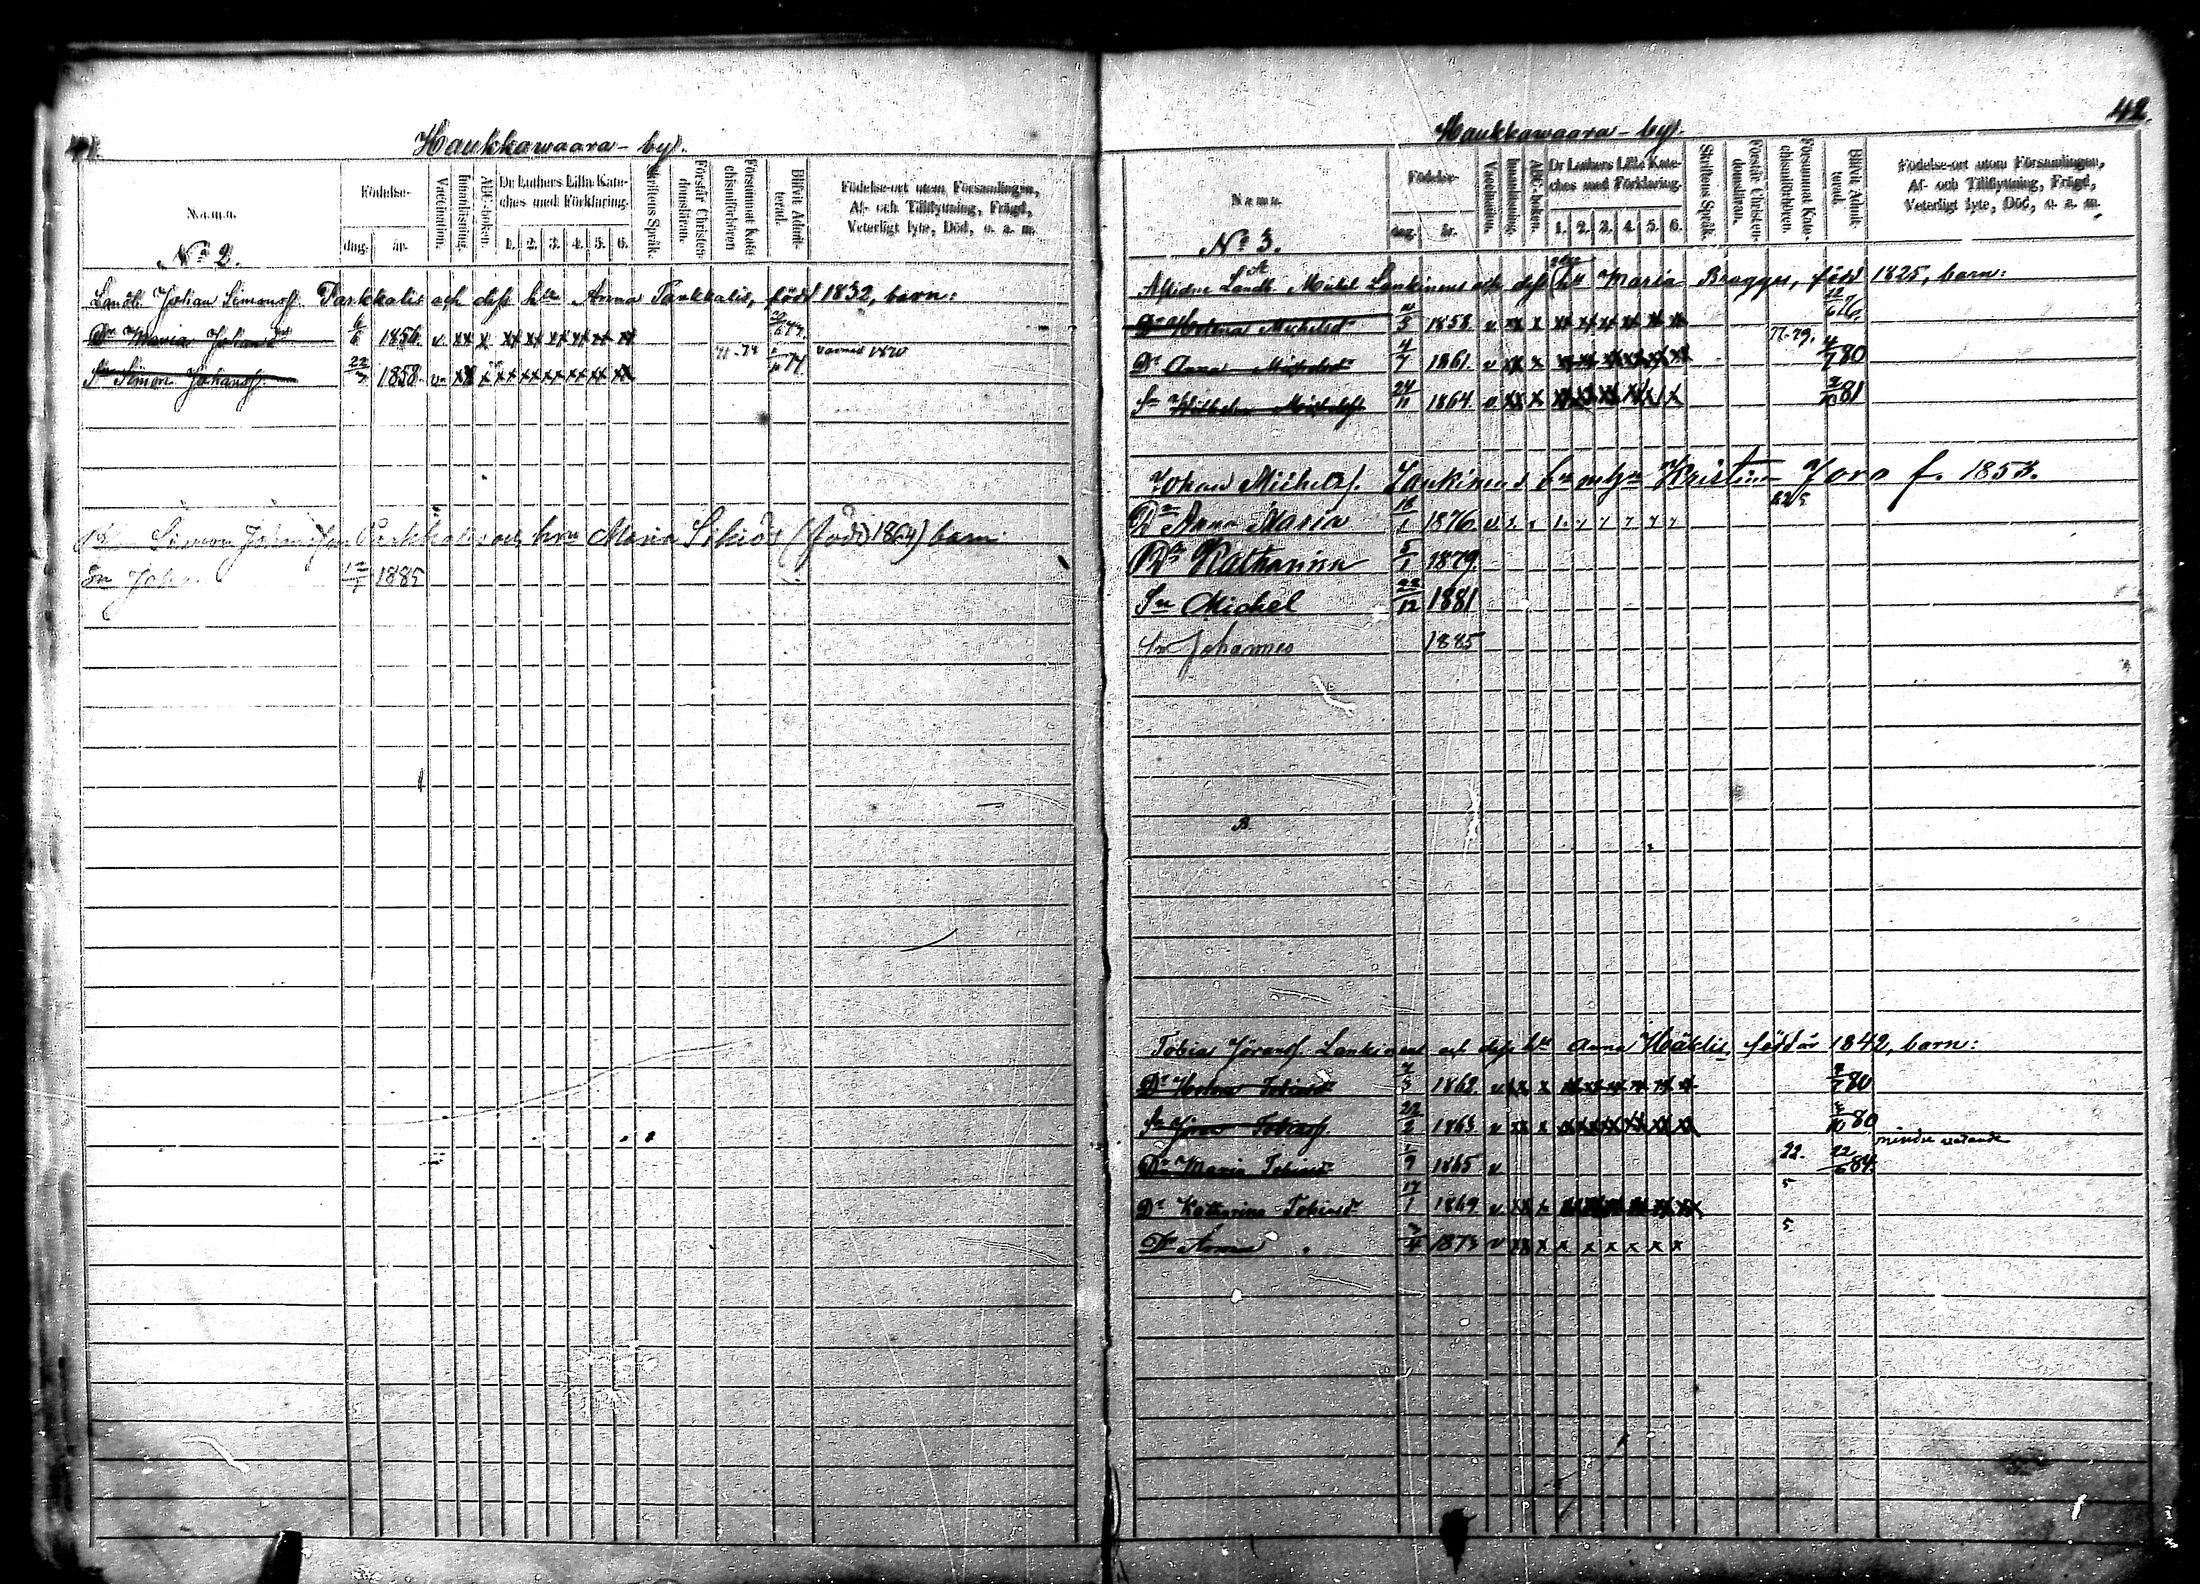 41.
Haukkawaara - by.
Namn.
Födelse-
dag.
år.
Vaccination.
Innanläsning.
ABC-boken.
Dr Luthers Lilla Kate-
ches med Förklaring.
1. 2. 3. 4. 5. 6.
Skriftens Språk.
Förstår Christen-
domsläran.
Försummat Kate-
chismiförhören
Blifvit Admit-
terad.
Födelse-ort utom Församlingen,
Af- och Tillflyttning, Frägd,
Veterligt lyte, Död, o. a. m.
No 2.
Landb. Johan Simonss. Parkkalis och dess hu Anna Parkkalis, född 1832, barn:
Dr Maria Johansdr 1856 v xx x xx xx xx xx xx xx
Sn Simon Johanss. 22 1858 v xx x xx xx xx xx xx xx 77-78
Simon och hru Maria (född 1864) barn
Sn Joh 1885
42.
Haukkawaara - by.
Namn.
Födelse-
dag.
år.
Vaccination.
Innanläsning.
ABC-boken.
Dr Luthers Lilla Kate-
ches med Förklaring.
1. 2. 3. 4. 5. 6.
Skriftens Språk.
Förstår Christen-
domsläran.
Försummat Kate-
chismiförhören.
Blifvit Admit-
terad.
Födelse-ort utom Församlingen,
Af- och Tillflyttning, Frägd,
Veterligt lyte, Död, o. a. m.
No 3.
Afsidne Landb. Michel Lankinens och dess hu Maria Bragge, född 1825, barn:
Dr Helena Michelsdr 1858 v xx x xx xx xx xx xx xx 76
Dr Anna Michelsdr 4/7 1861. v xx x xx xx xx xx xx xx 77-79. 4/7 80
Sn Wilhelm Michelss 24/11 1864. v xx x xx xx xx xx x x 81
Johan Michelss. Lankinens bn m hu Kristina Jovo f. 1853.
Dr Anna Maria 18/1 1876
Dr Katharina 5/1 1879
Sn Michel 22/12 1881
Sn Johannes 1885
Tobias Jöranss. Lankinens och dess hu Anna Häklis, född år 1842, barn:
Dr Helena Tobiasdr 1862. v xx x xx xx xx xx xx xx 80
Sn Jöran Tobiass. 22/2 1863 v xx x xx xx xx xx xx xx 80
Dr Maria Tobiasdr 1/9 1865 v 22. 22/6 84. mindre vetande
Dr Katharina Tobiasdr 17/1 1869 v xx x xx xx xx xx xx xx 5
Dr Anna " 1873 v xx x x x x x x x 5